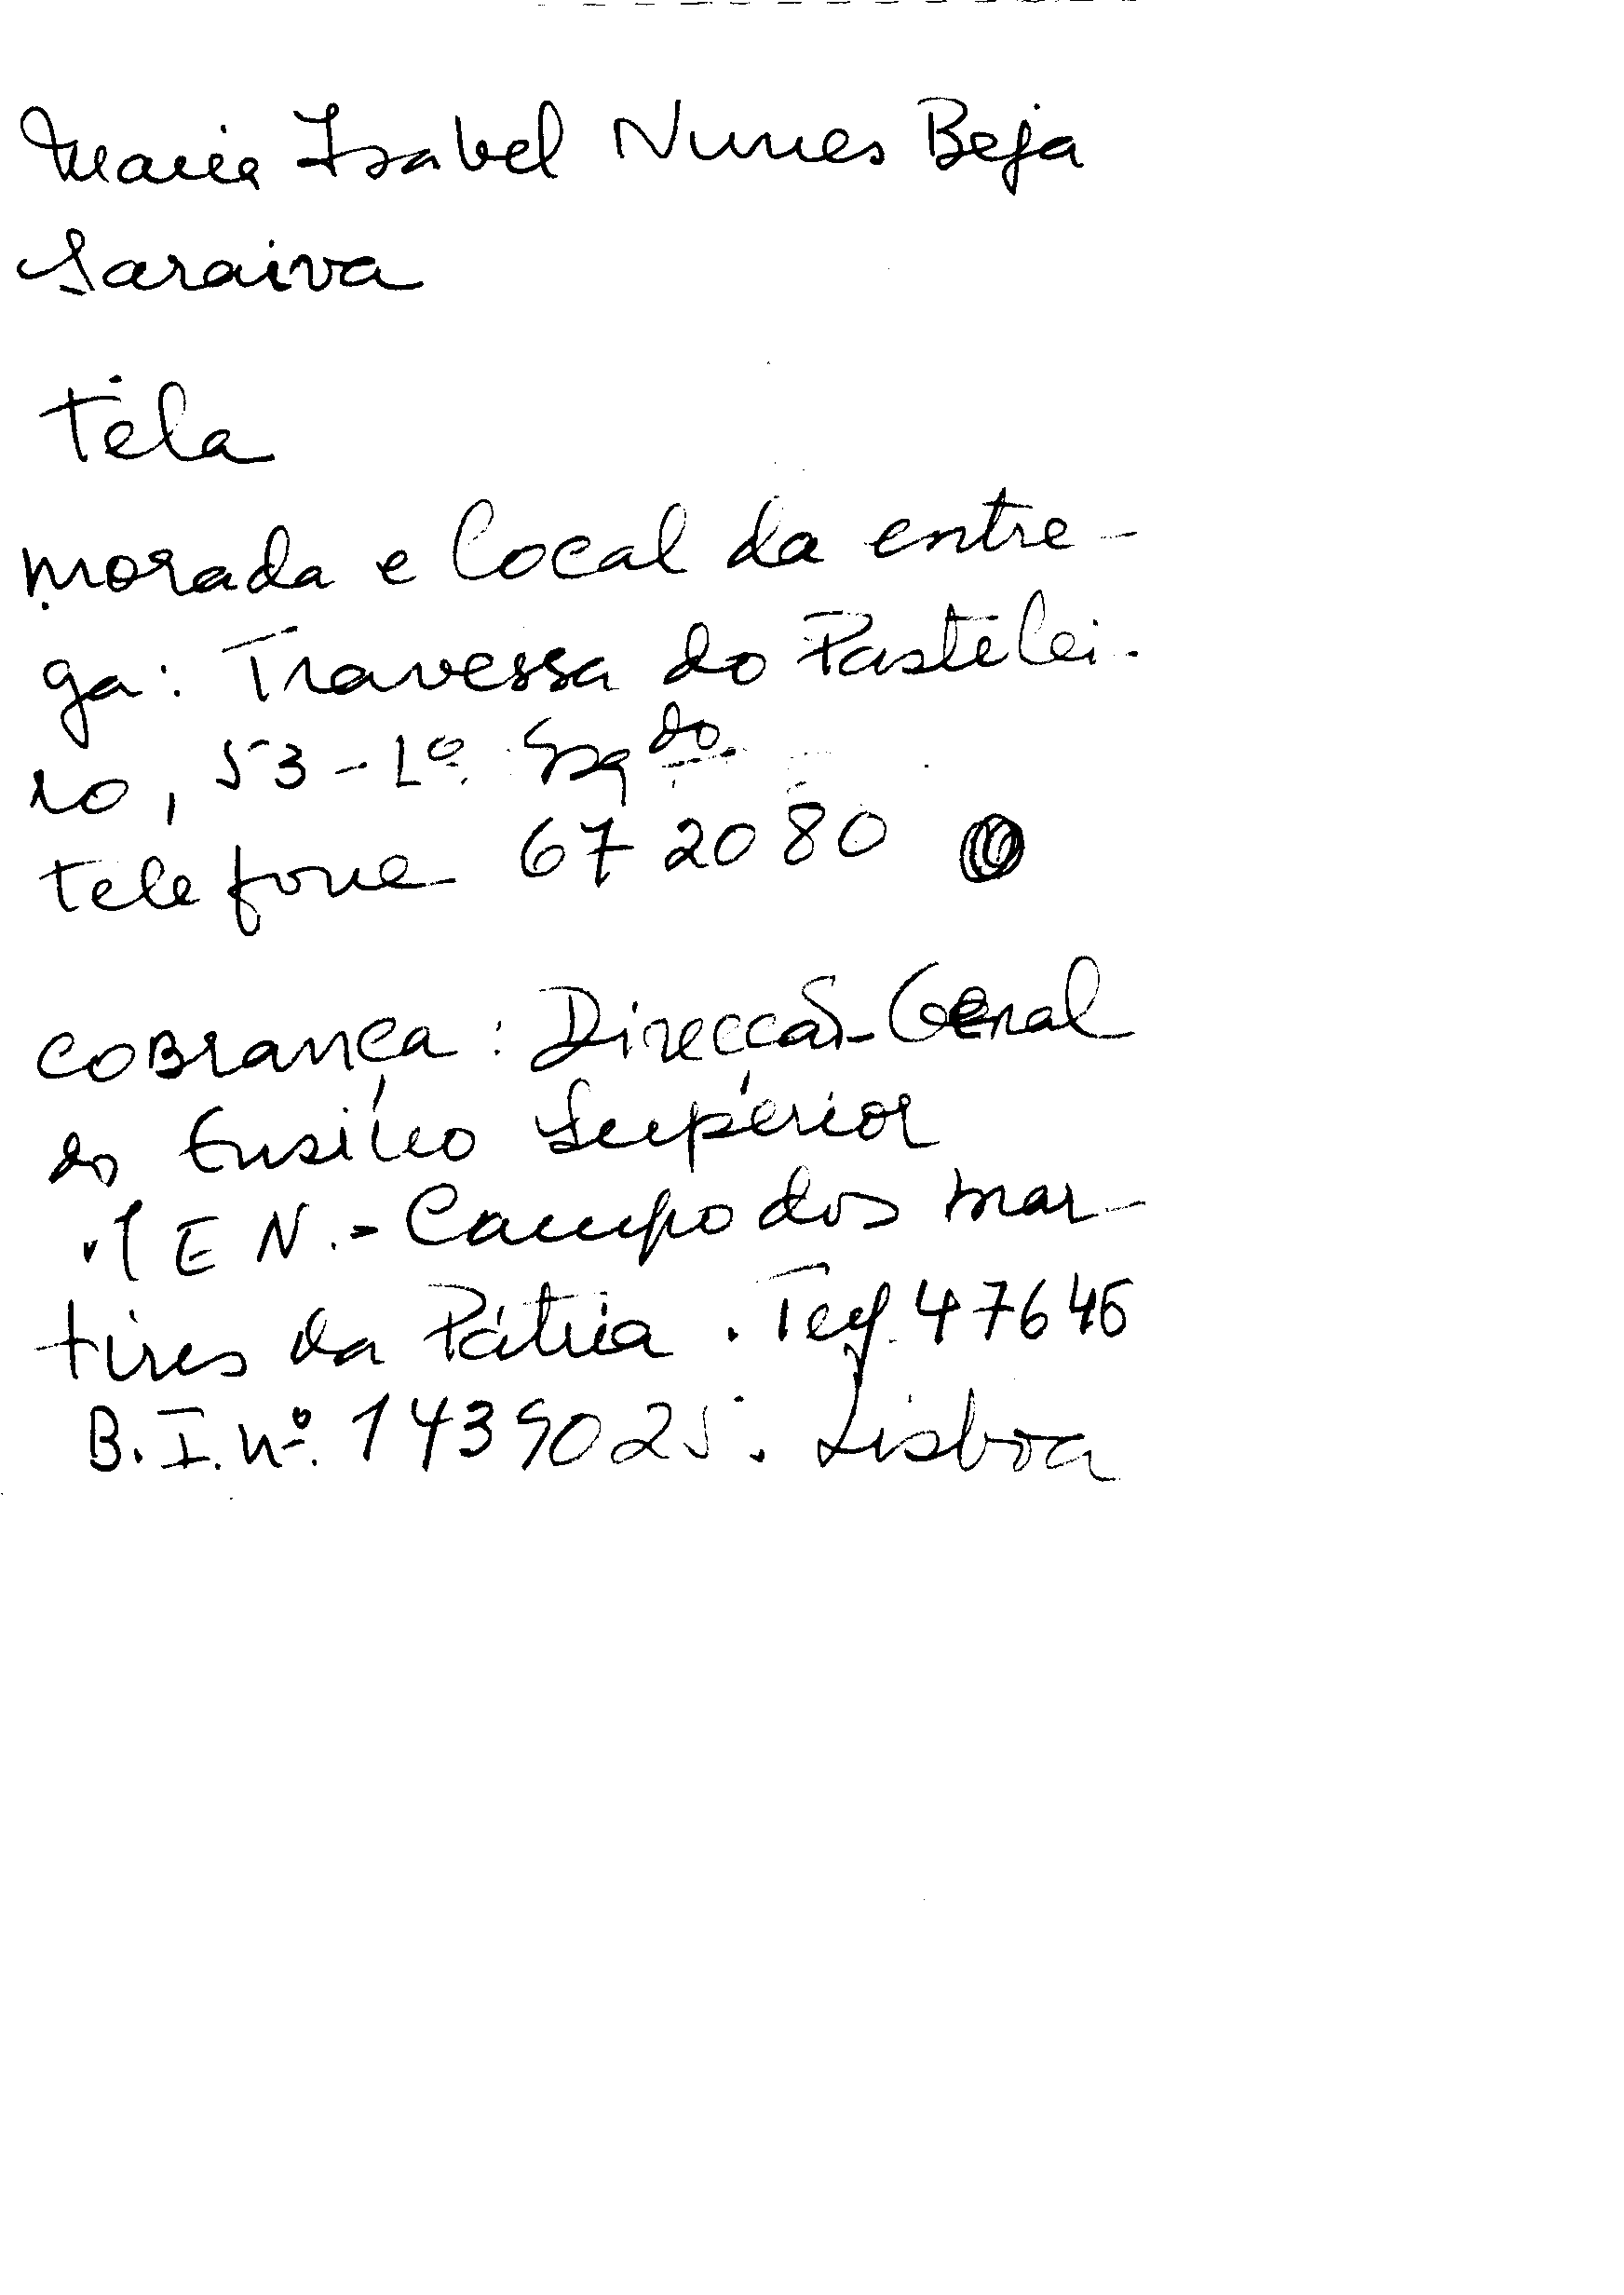 Maria Isabel Nunes Beja
Saraiva
tela
morada e local da entre-
ga: Travessa do Pastelei-
ro, 53-1º Esqdo.
telefone 67 20 80
cobrança: Direcção-Geral
do Ensino Superior
MEN.- Campo dos mar-
tires da Pátria. Telf. 47645
B.I. nº. 1439025. Lisboa